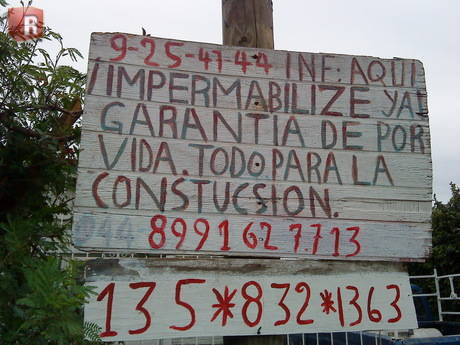 R
9-25-47-44 INF: AQUI
¡IMPERMABILIZE YA!
GARANTIA DE POR
VIDA. TODO PARA LA
CONSTUCSION.
044 8991627713
135*832*1363